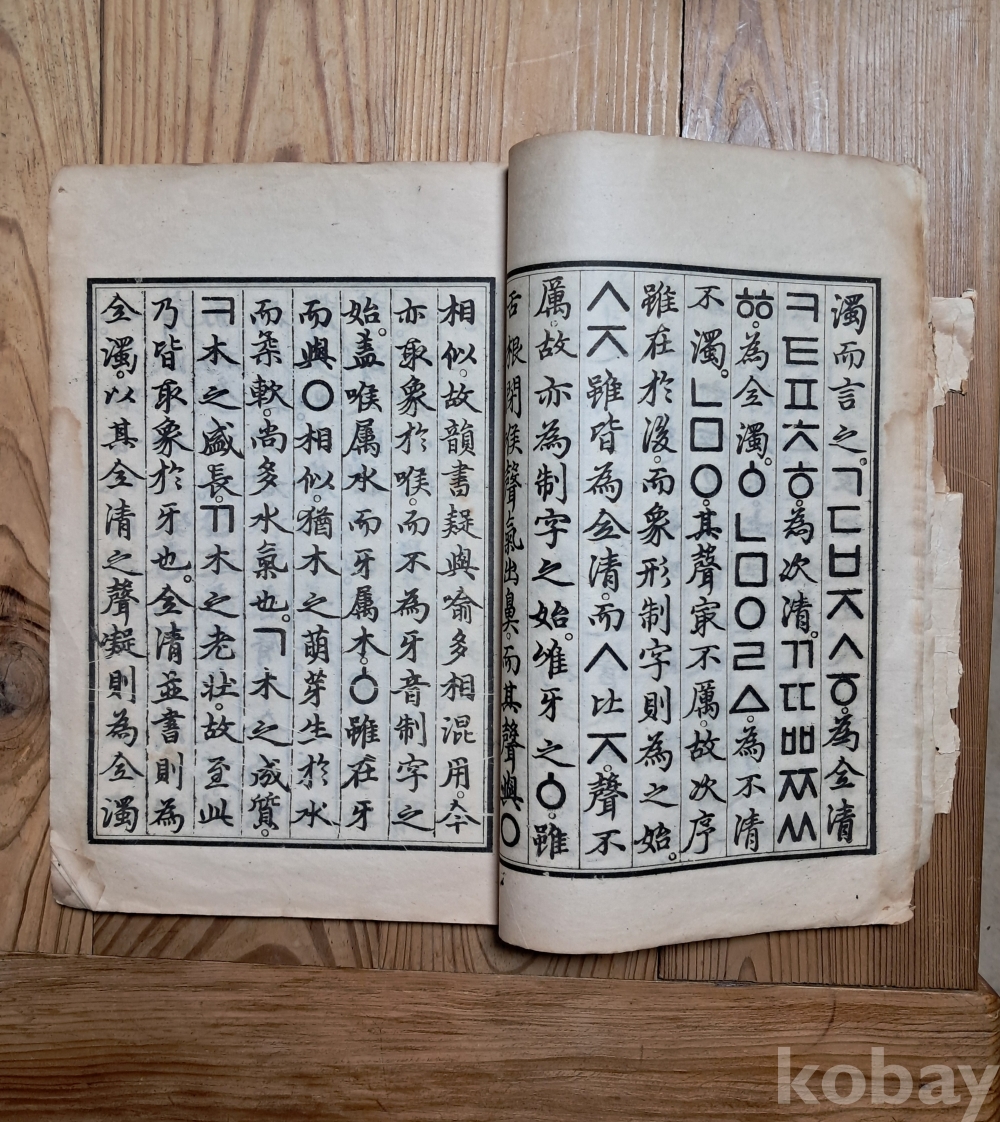 濁而言之。ㄱㄷㅂㅈㅅㆆ。為全清
ㅋㅌㅍㅊㅎ。為次清。ㄲㄸㅃㅉㅆ
ㆅ。為全濁。ㆁㄴㅁㅇㄹㅿ。為不清
不濁。ㄴㅁㅇ。其聲㝡不厲。故次序
雖在於後。而象形制字則為之始。
ㅅㅈ雖皆為全清。而ㅅ比ㅈ。聲不
厲。故亦為制字之始。唯牙之ㆁ。雖
舌根閉喉聲氣出鼻。而其聲與ㅇ
相似。故韻書疑與喻多相混用。今
亦取象於喉。而不為牙音制字之
始。盖喉屬水而牙屬木。ㆁ雖在牙
而與ㅇ相似。猶木之萌芽生於水
而柔軟。尚多水氣也。ㄱ木之成質。
ㅋ木之盛長。ㄲ木之老壯。故至此
乃皆取象於牙也。全清並書則為
全濁。以其全清之聲凝則為全濁
kobay